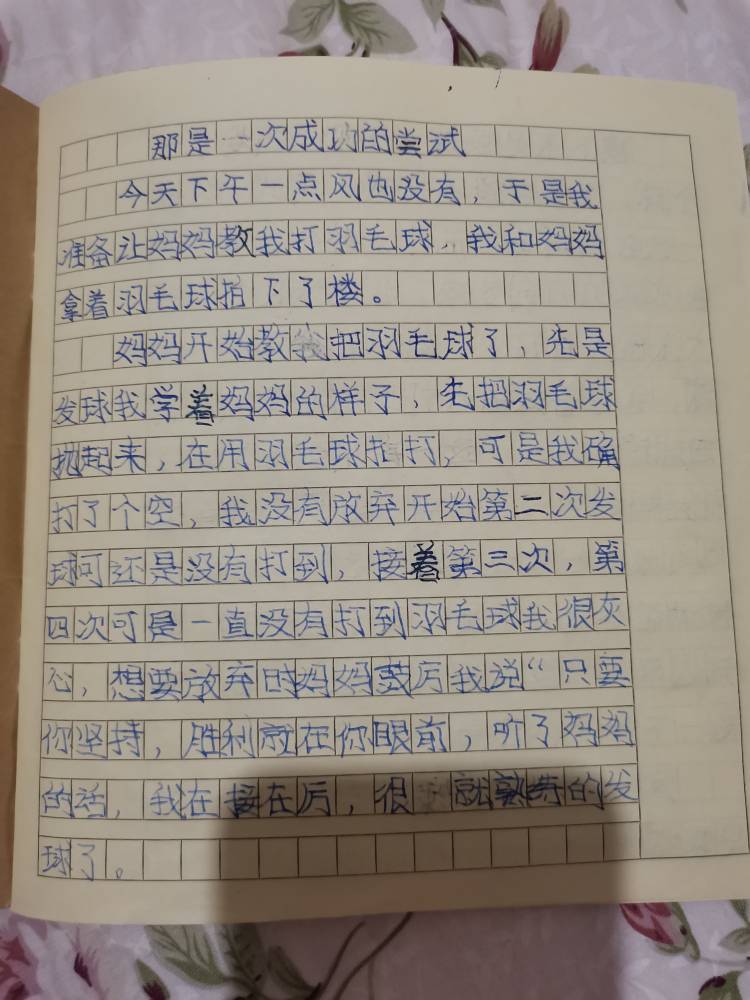 那是一次成功的尝试
今天下午一点风也没有，于是我
准备让妈妈教我打羽毛球，我和妈妈
拿着羽毛球拍下了楼。
妈妈开始教我把羽毛球了，先是
发球我学着妈妈的样子，先把羽毛球
抛起来，在用羽毛球拍打，可是我确
打了个空，我没有放弃开始第二次发
球可还是没有打到，接着第三次，第
四次可是一直没有打到羽毛球我很灰
心，想要放弃时妈妈鼓厉我说“只要
你坚持，胜利就在你眼前，听了妈妈
的话，我在接在厉，很就熟练的发
球了。